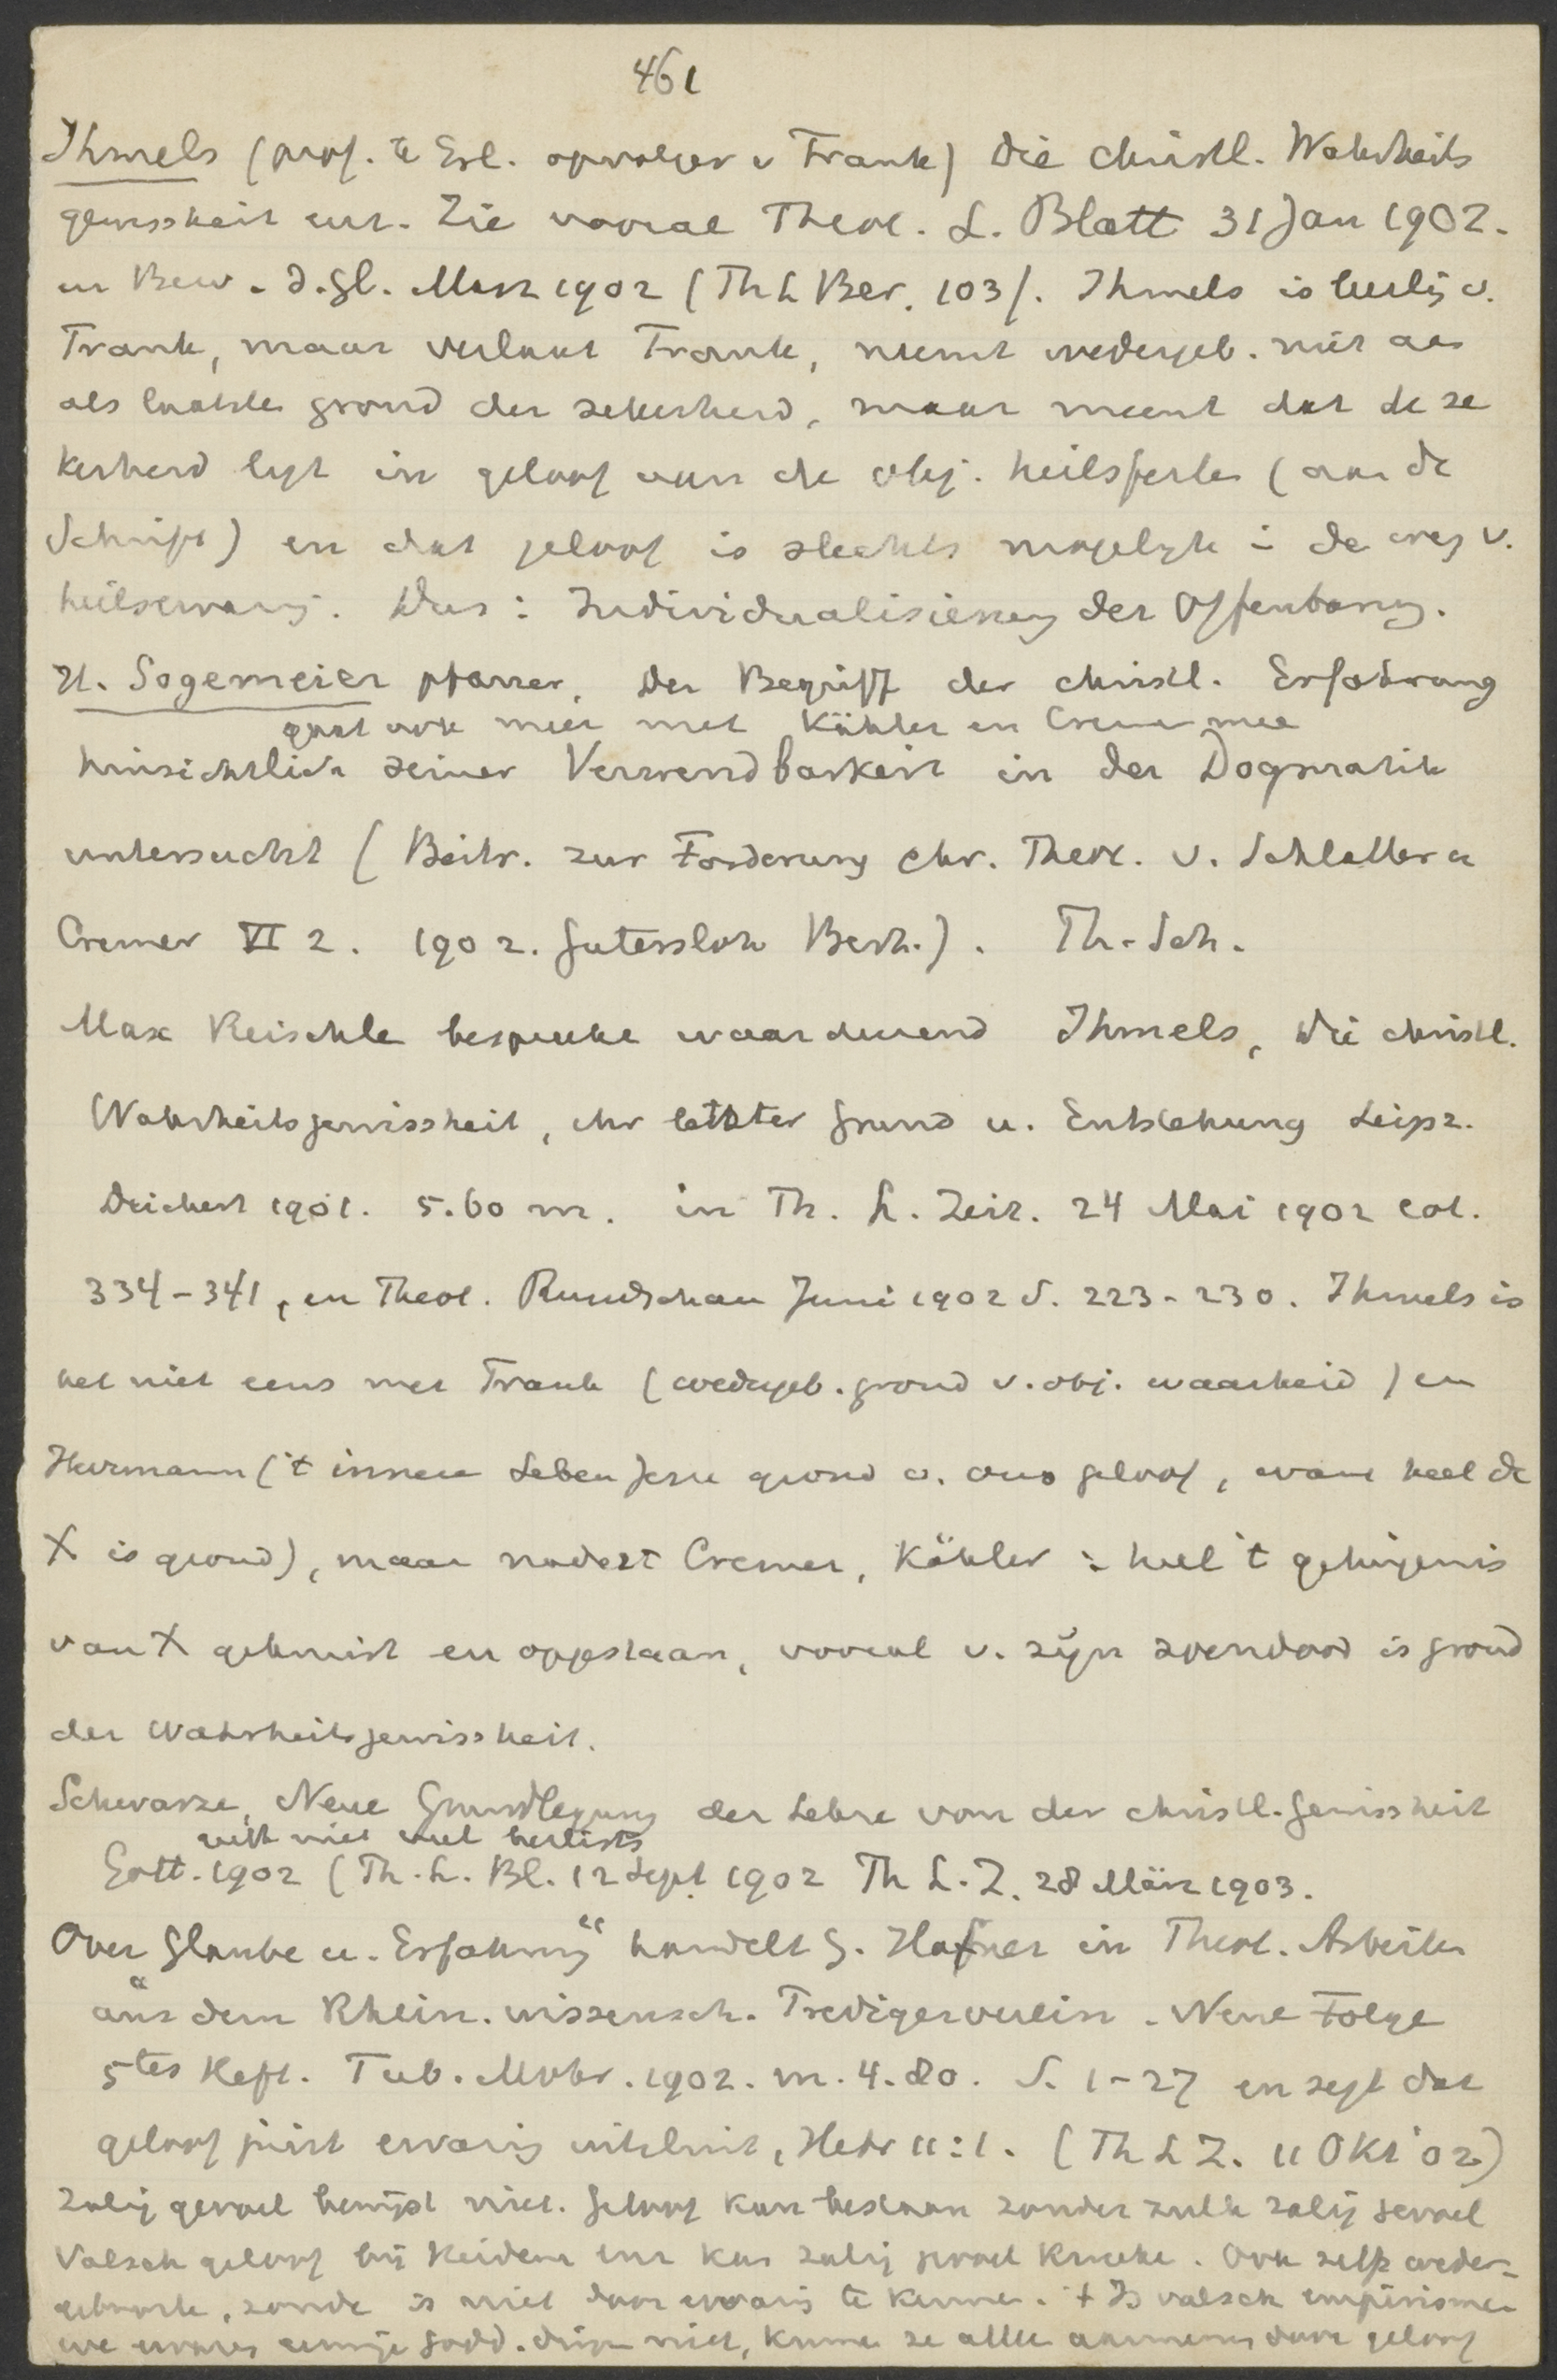 461
Ihmels (prof. te Erl. opvolger v Frank) Die christl. Wahrheits
gewissheit enz. Zie vooral Theol. L. Blatt 31 Jan 1902.
en Bew. d. Gl. Marz 1902 (Th L Ber. 103). Ihmels is leerling v.
Frank, maar verlaat Frank, neemt wedergeb. niet aan
als laatste grond der zekerheid, maar meent dat de ze
kerheid ligt in geloof aan de obj. heilsfeiten (aan de
Schrift) en dat geloof is slechts mogelyk in de weg v.
heilservaring. Dus: Individualisierung der Offenbarung.
H. Sogemeier pfarrer, Der Begriff der christl. Erfahrung
gaat ook meer met Kähler en Cremer mee
hinsichtlich seiner Verwendbarkeit in der Dogmatik
untersucht (Beitr. zur Forderung chr. Theol. v. Schlatter u
Cremer VI 2. 1902. Gutersloh Berth.). Th-Sch.
Max Reischle besprak waardeerend Ihmels, Die christl.
Wahrheitsgewissheit, ihr letzter Grund u. Entstehung Leipz.
Deichert 1901. 5.60 m. in Th. L. Zeit. 24 Mai 1902 col.
334-341, en Theol. Rundschau Juni 1902 S. 223-230. Ihmels is
het niet eens met Frank (wedergeb. grond v. obj. waarheid) en
Herrmann ('t innere Leben Jesu grond v. ons geloof, want heel de
X is grond), maar nadert Cremer, Kähler: heel 't getuigenis
van X gekruist en opgestaan, vooral v. zijn zoendood is grond
der Wahrheitsgewissheit.
Schwarze, Neue Grundlegung der Lehre von der christl. Gewissheit
niet veel
Gott. 1902 (Th. L. Bl. 12 Sept 1902 Th L. Z. 28 März 1903.
Over Glaube u. Erfahrung" handelt G. Hafner in Theol. Arbeiten
aus dem Rhein. wissensch. Predigerverein. Neue Folge
5tes Heft. Tub. Mohr. 1902. m. 4.80. S. 1-27 en zegt dat
geloof juist ervaring uitsluit, Hebr 11:1. (Th L Z. 11 Okt '02)
Zalig gevoel bewijst niet. Geloof kan bestaan zonder zulk zalig gevoel
Valsch geloof bij Heidenen enz kan zalig gevoel kweeken. Ook zelfs weder-
geboorte, zonde is niet door ervaring te kennen. 't Is valsch empirisme
we ervaren eenige Godd. dingen niet, kunnen ze alleen aannemen door geloof